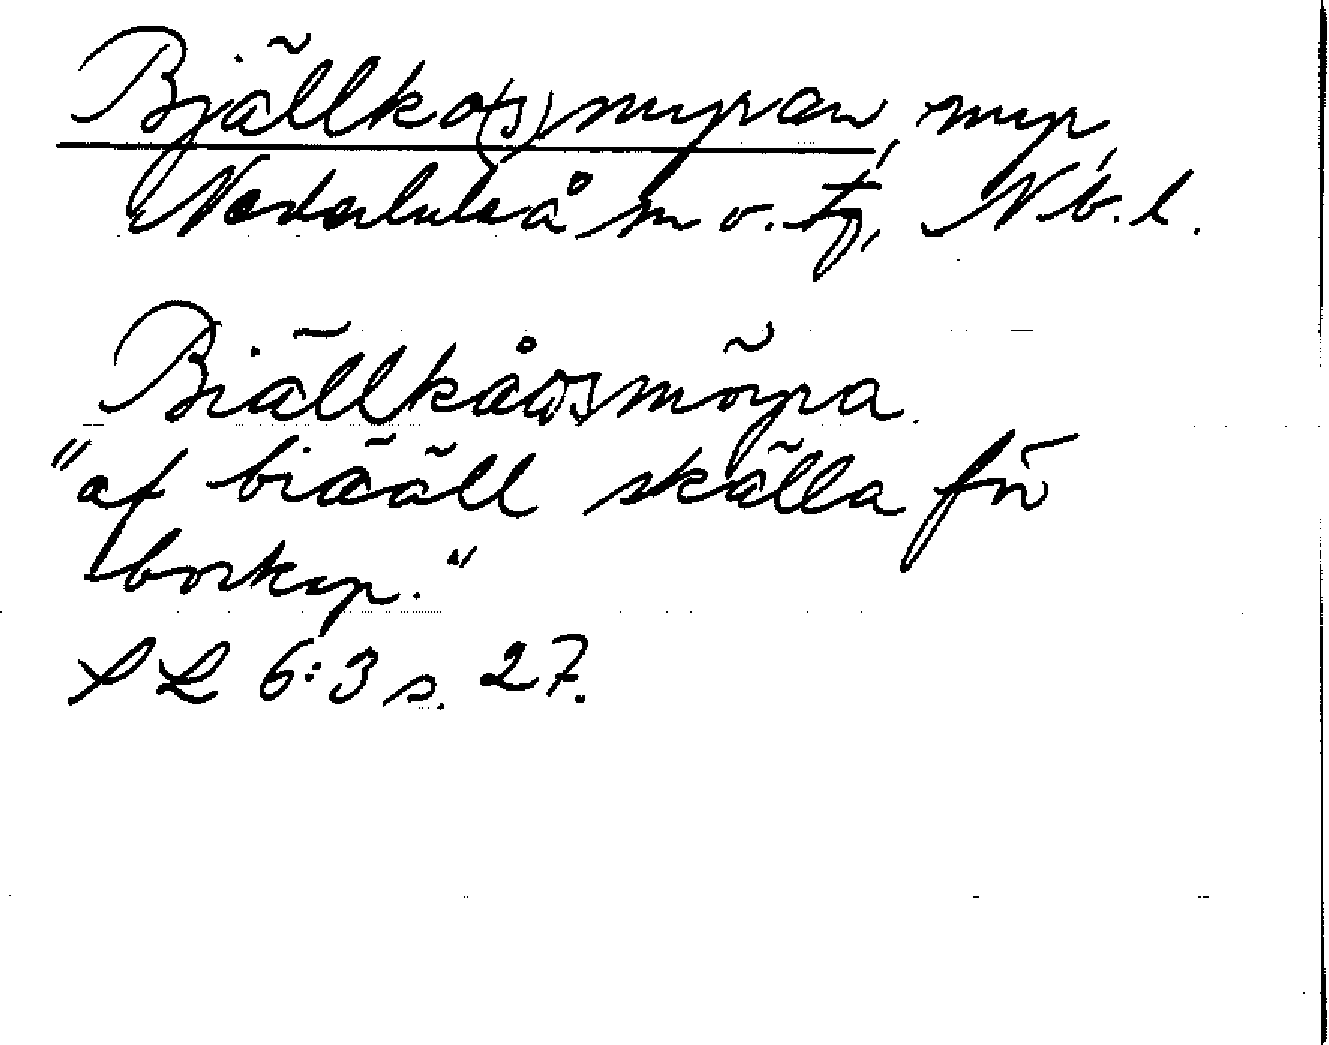 Bjällko(s)myran, myr
Nederluleå sn o. tg, Nb. l.
Biällkåå(s)möyra.
"af biääll skälla för
borkup."
SL 6:3 s. 27.